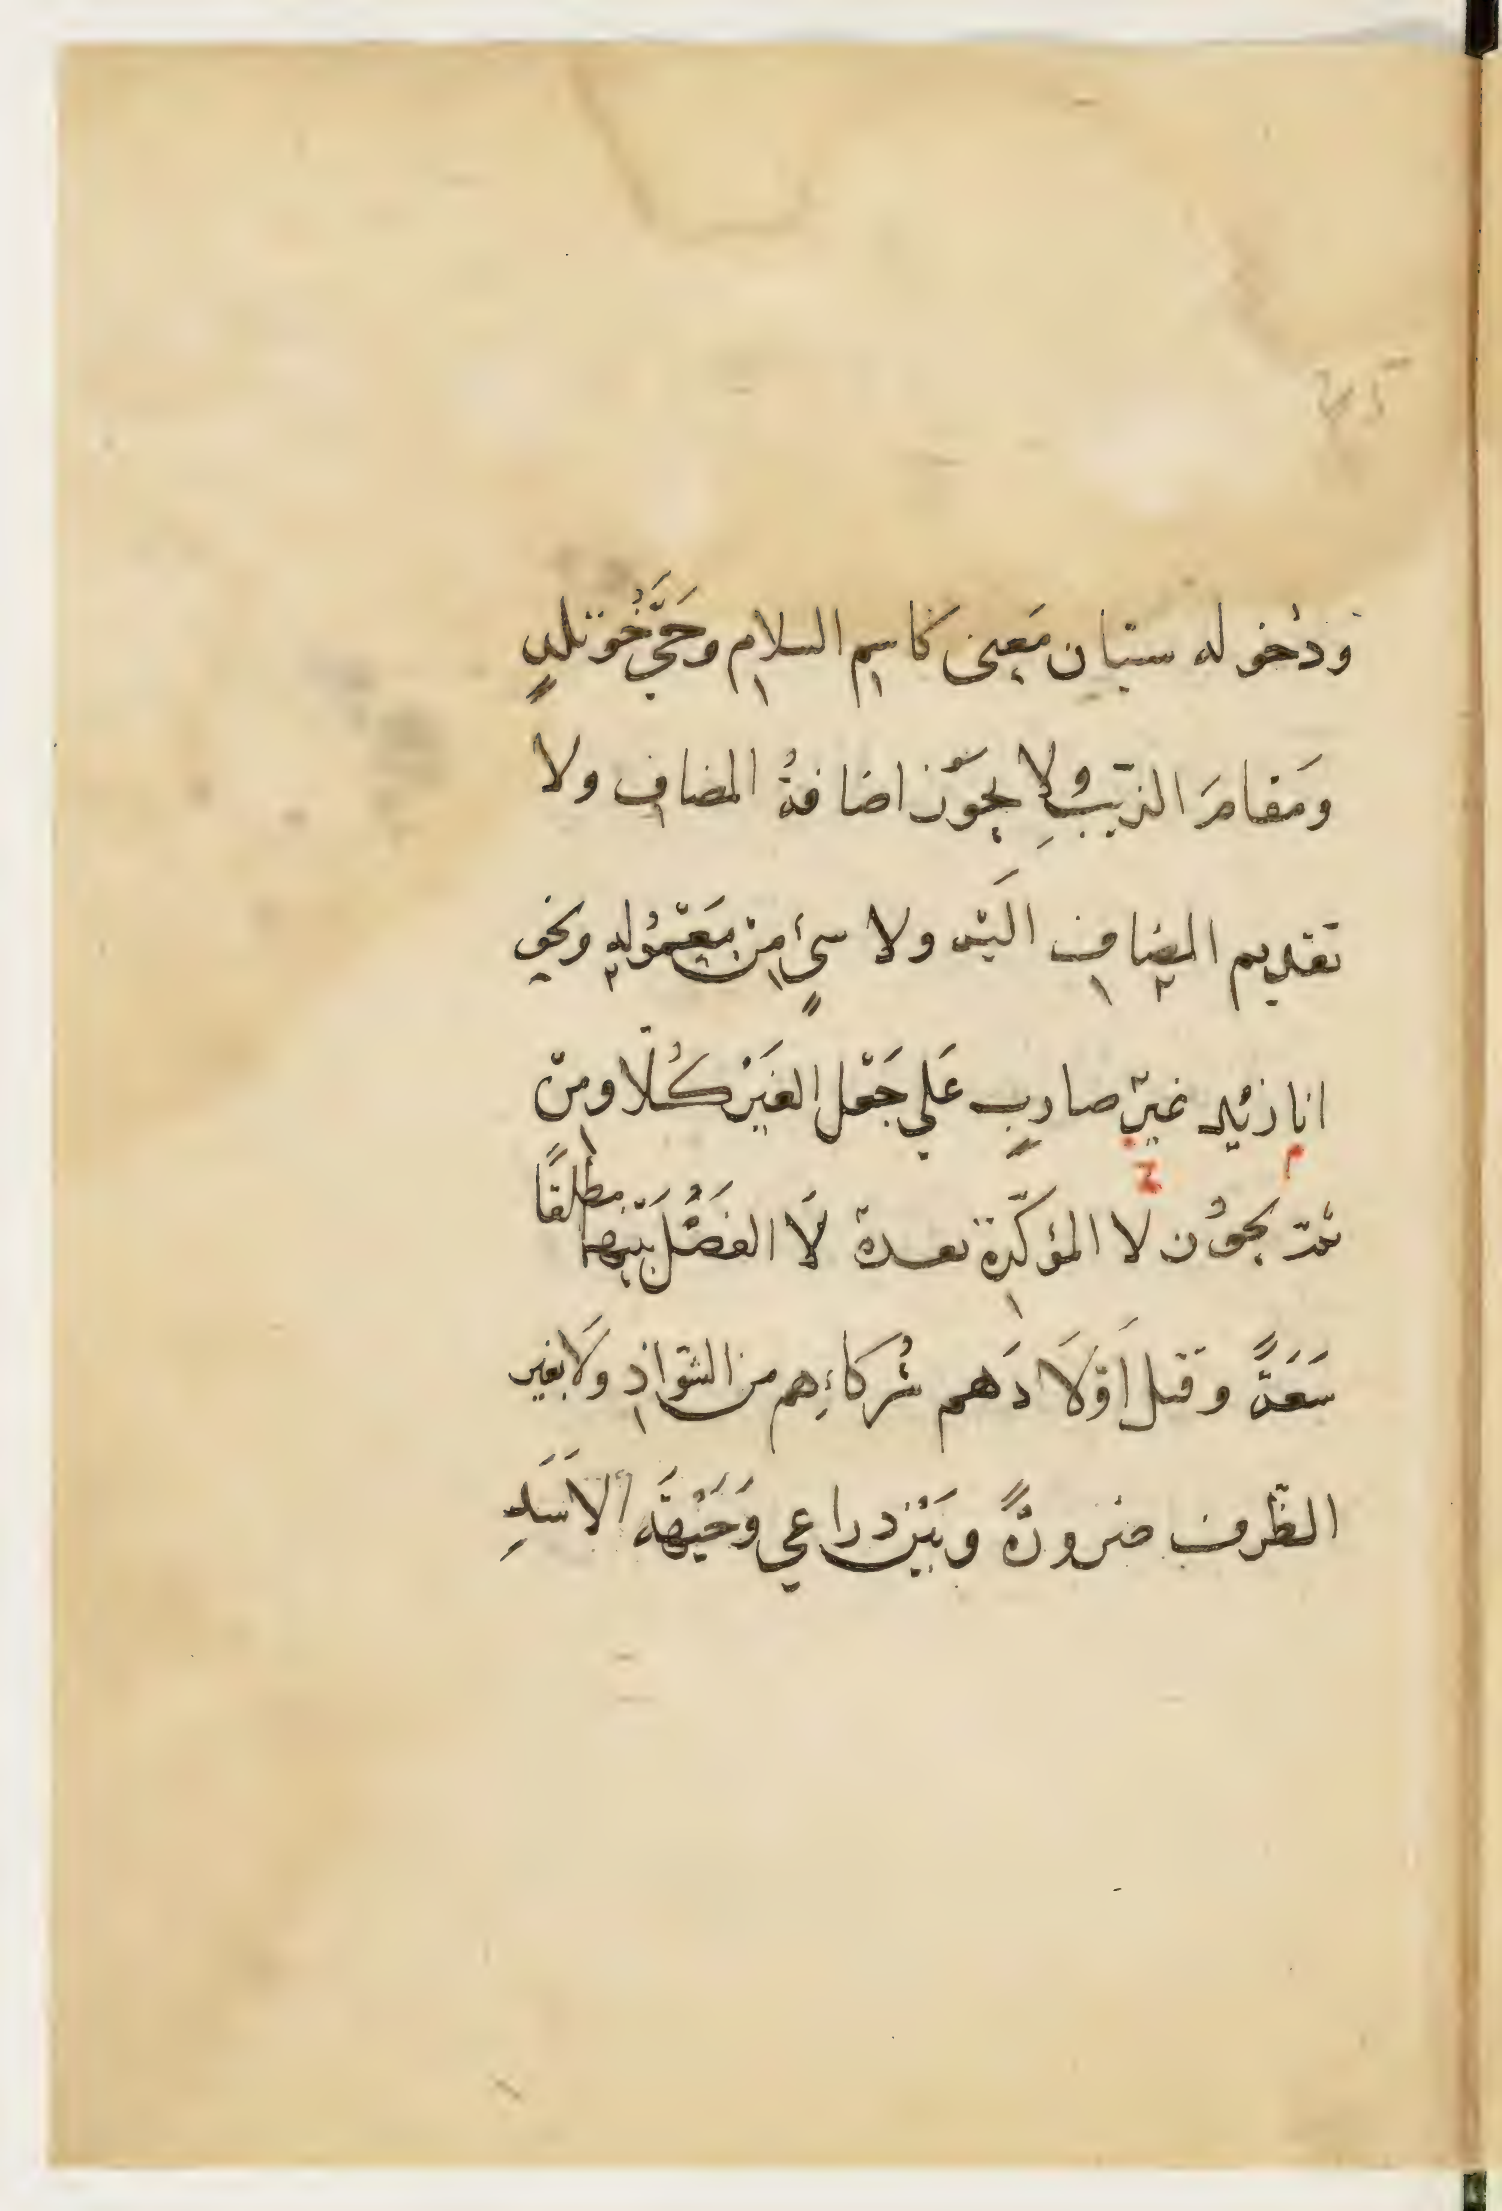 ودخوله سيّان مَعنى كاسم السلام وحَيّ خُوَيلدٍ
ومَقامَ الذئب ولا يجوز اضافةُ المضاف ولا
تقديم المضاف اليْه ولا شيءٍ مِنْ مَعْمُولِه ونحو
انا زيْد غيرُ ضاربٍ عَلى جَعْل الغَيْر كَلَا ومِنْ
ثمّ يجوُز لا المؤكّدة بعده لَا الفَصْلُ بَيْنهما مطلقًا
سَعَةً وقتل أوْلَادَهم شُركاءِهم من الشوَاذِ ولَا بغير
الظّرف ضرورةً وبَيْن ذراعي وَجَبْهَة الأسَدِ